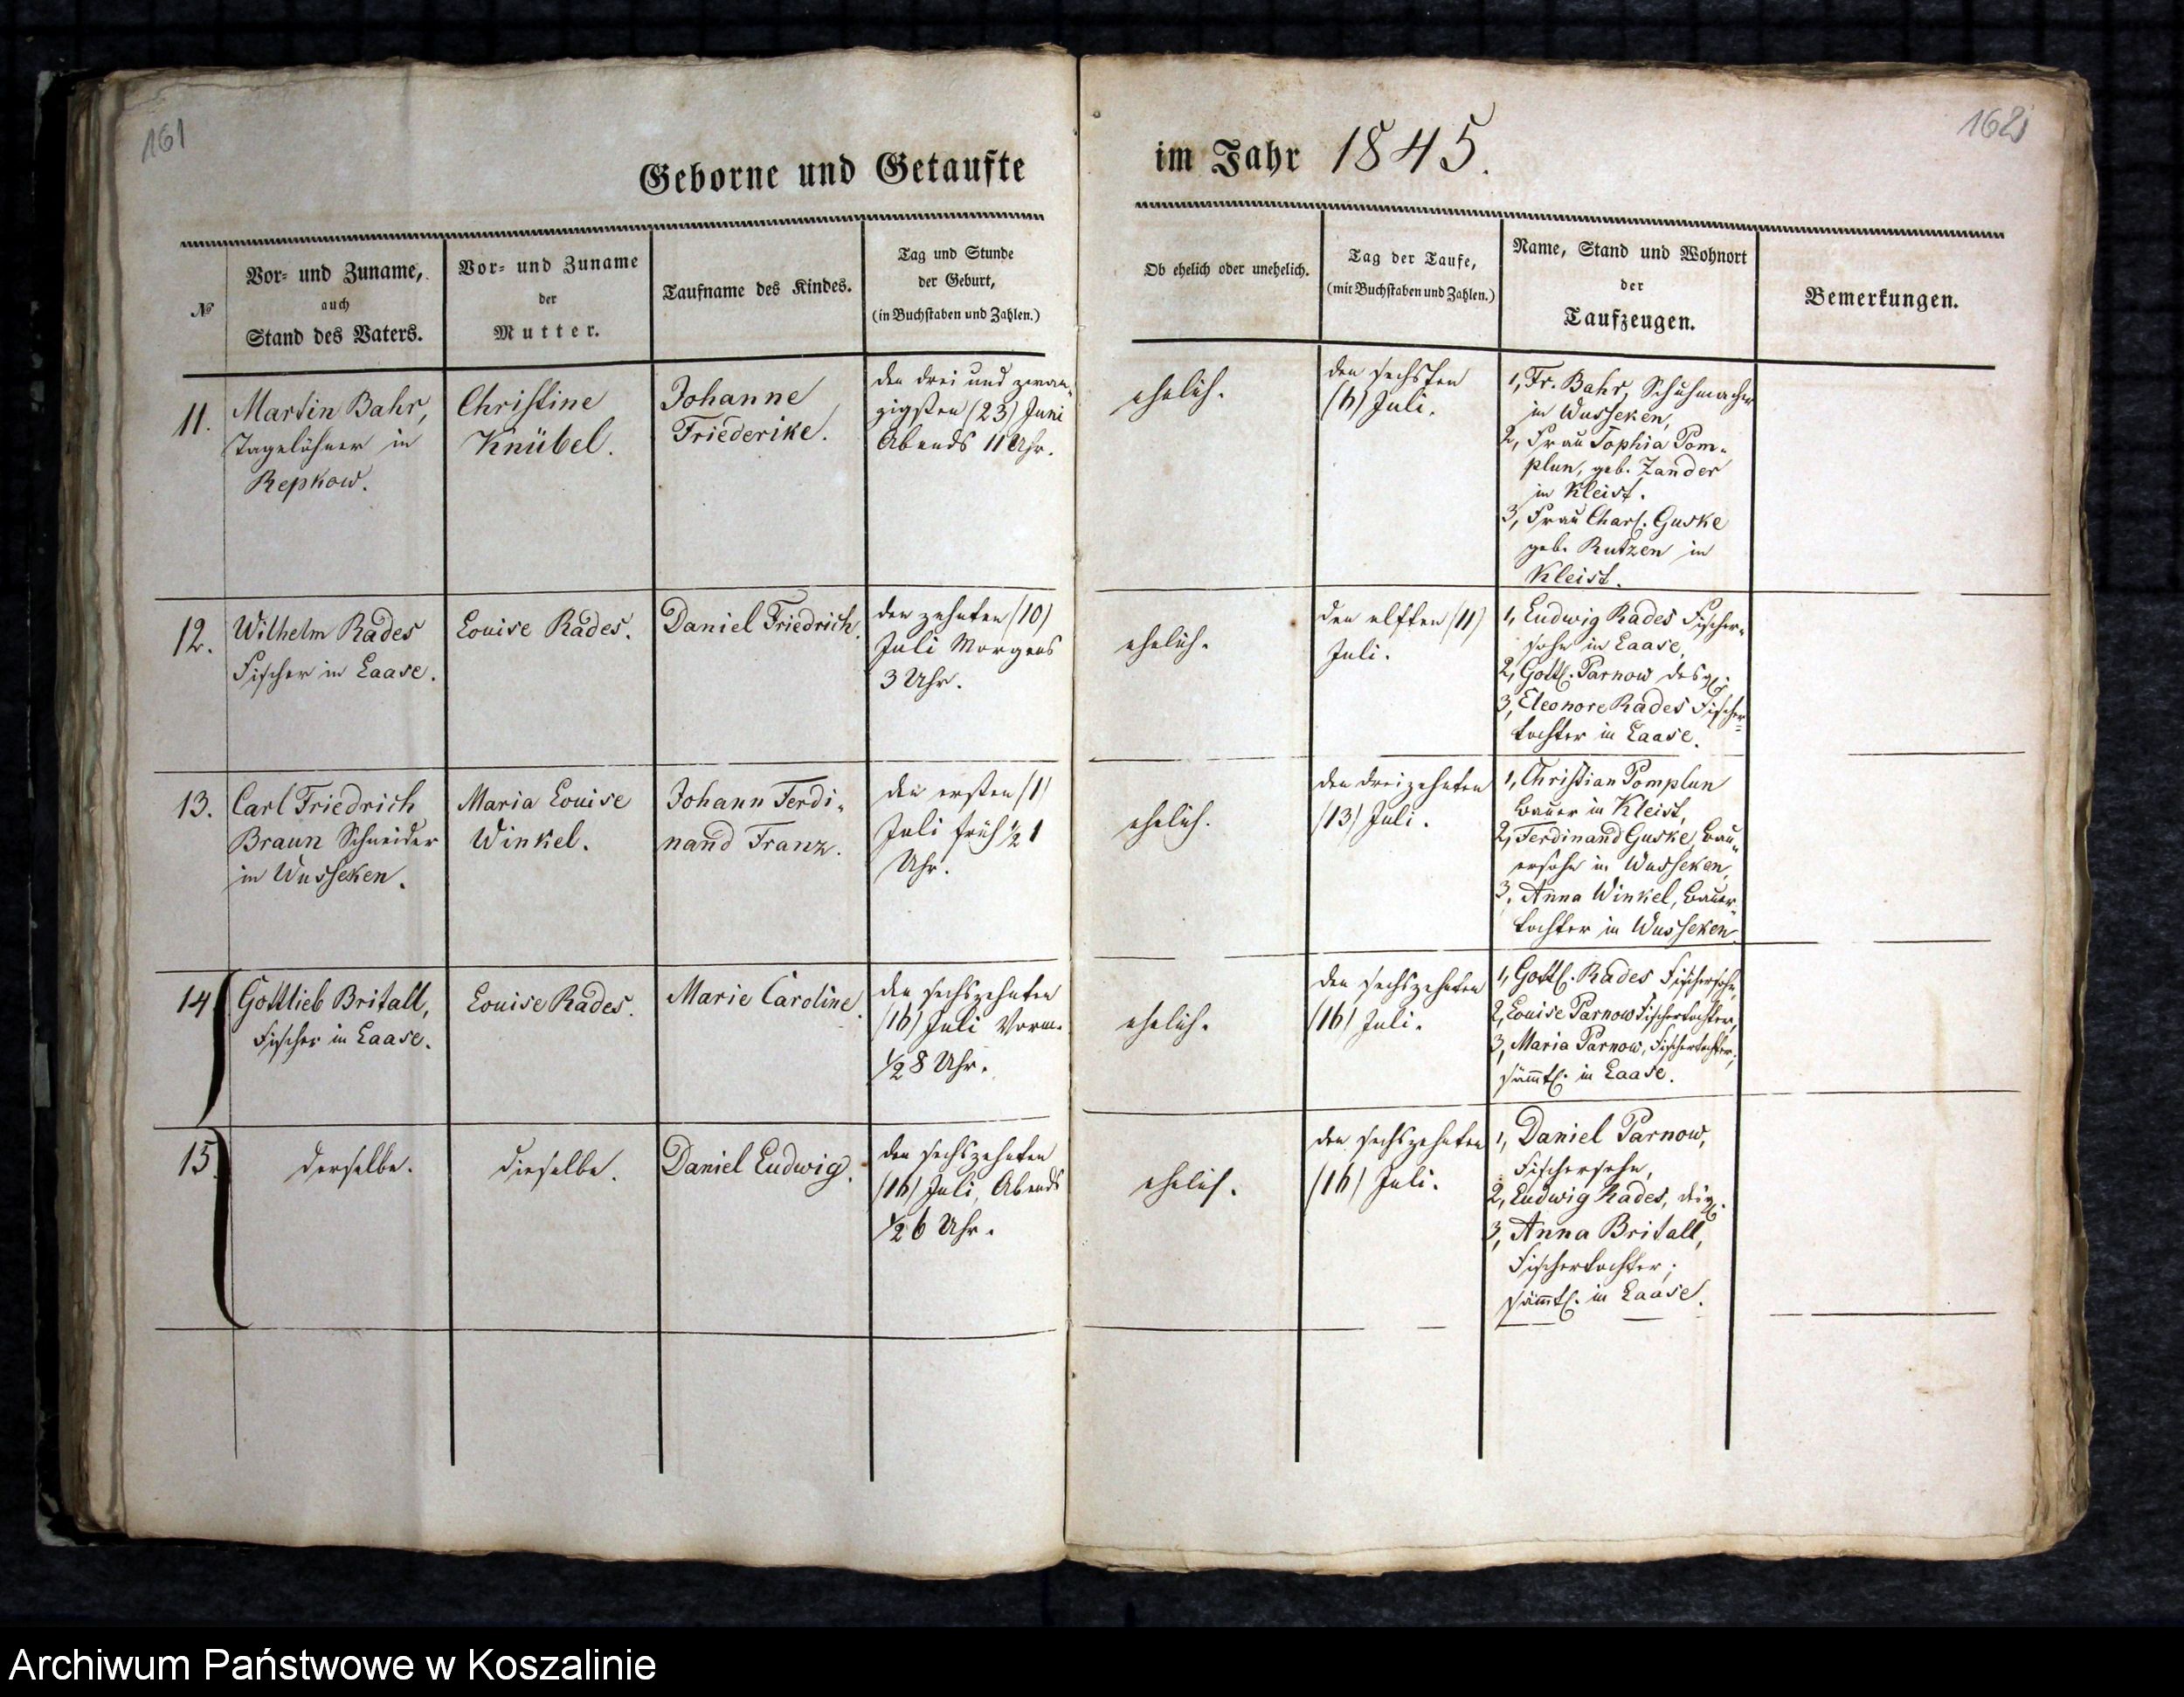 161
162
Geborne und Getaufte
im Jahr 1845.
№
Vor- und Zuname,
auch
Stand des Vaters.
Vor- und Zuname
der
Mutter.
Taufname des Kindes.
Tag und Stunde
der Geburt,
(in Buchstaben und Zahlen.)
Ob ehelich oder unehelich.
Tag der Taufe,
(mit Buchstaben und Zahlen.)
Name, Stand und Wohnort
der
Taufzeugen.
Bemerkungen.
11.
Martin Bahr,
Tagelöhner in
Repkow.
Christine
Knübel.
Johanne
Friederike.
den drei und zwan-
zigsten (23) Juni
Abends 11 Uhr.
ehelich.
den sechsten
(6) Juli.
1, Fr. Bahr, Schuhmacher
in Wusseken,
2, Frau Sophia Pom-
plun, geb. Zander
in Kleist.
3, Frau Charl. Guske
geb. Rutzen in
Kleist.
12.
Wilhelm Rades
Fischer in Laase.
Louise Rades.
Daniel Friedrich.
den zehnten (10)
Juli Morgens
3 Uhr.
ehelich.
den elften (11)
Juli.
1, Ludwig Rades Fischer-
sohn in Laase,
2, Gottl. Parnow desgl.
3, Eleonore Rades Fischer-
tochter in Laase.
13.
Carl Friedrich
Braun Schneider
in Wusseken.
Maria Louise
Winkel.
Johann Ferdi-
nand Franz.
den ersten (1)
Juli früh ½ 1
Uhr.
ehelich.
den dreizehnten
(13) Juli.
1, Christian Pomplun
Bauer in Kleist,
2, Ferdinand Guske, Bau-
ersohn in Wusseken,
3, Anna Winkel, Bauer-
tochter in Wusseken.
14.
Gottlieb Britall,
Fischer in Laase.
Louise Rades.
Marie Caroline.
den sechszehnten
(16) Juli Vorm.
½ 8 Uhr.
ehelich.
den sechszehnten
(16) Juli.
1, Gottl. Rades Fischersohn,
2, Louise Parnow Fischertochter,
3, Maria Parnow, Fischertochter;
sämmtl. in Laase.
15.
derselbe.
dieselbe.
Daniel Ludwig.
den sechszehnten
(16) Juli, Abends
½ 6 Uhr.
ehelich.
den sechszehnten
(16) Juli.
1, Daniel Parnow,
Fischersohn,
2, Ludwig Rades, desgl.
3, Anna Britall,
Fischertochter;
sämmtl. in Laase.
Archiwum Państwowe w Koszalinie